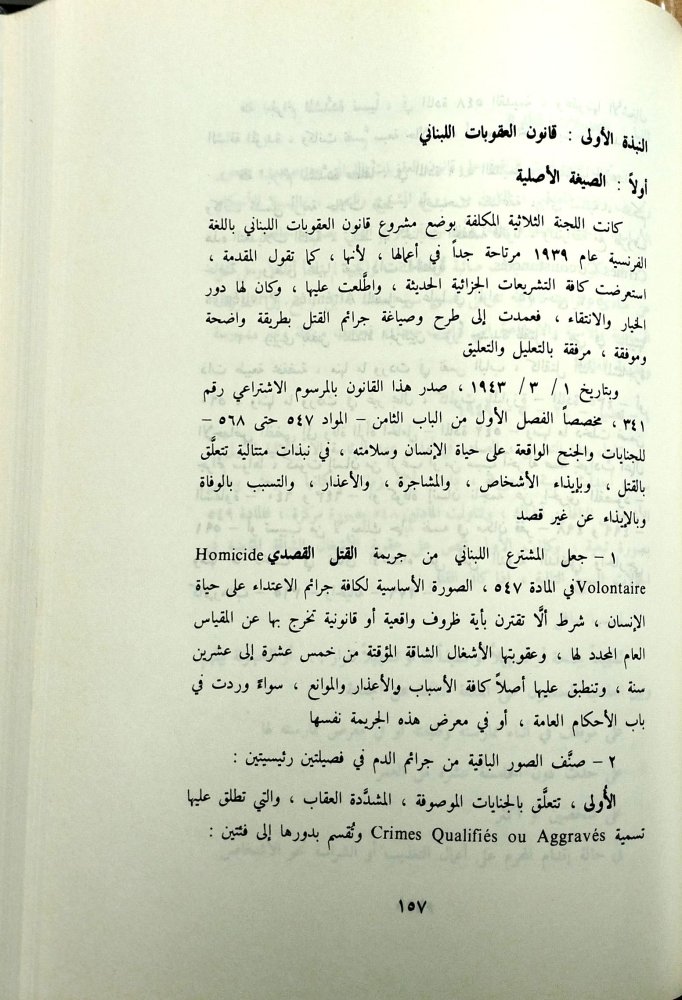 النبذة الأولى : قانون العقوبات اللبناني
أولاً : الصيغة الأصلية
كانت اللجنة الثلاثية المكلفة بوضع مشروع قانون العقوبات اللبناني باللغة
الفرنسية عام ١٩٣٩ مرتاحة جداً في أعمالها ، لأنها ، كما تقول المقدمة ،
استعرضت كافة التشريعات الجزائية الحديثة ، واطَّلعت عليها ، وكان لها دور
الخيار والانتقاء ، فعمدت إلى طرح وصياغة جرائم القتل بطريقة واضحة
وموفقة ، مرفقة بالتعليل والتعليق
وبتاريخ ١ / ٣ / ١٩٤٣ ، صدر هذا القانون بالمرسوم الاشتراعي رقم
٣٤١ ، مخصصاً الفصل الأول من الباب الثامن – المواد ٥٤٧ حتى ٥٦٨ –
للجنايات والجنح الواقعة على حياة الإنسان وسلامته ، في نبذات متتالية تتعلَّق
بالقتل ، وبإيذاء الأشخاص ، والمشاجرة ، والأعذار ، والتسبب بالوفاة
وبالإيذاء عن غير قصد
١ – جعل المشترع اللبناني من جريمة القتل القصدي Homicide
Volontaire في المادة ٥٤٧ ، الصورة الأساسية لكافة جرائم الاعتداء على حياة
الإنسان ، شرط ألَّا تقترن بأية ظروف واقعية أو قانونية تخرج بها عن المقياس
العام المحدد لها ، وعقوبتها الأشغال الشاقة المؤقتة من خمس عشرة إلى عشرين
سنة ، وتنطبق عليها أصلاً كافة الأسباب والأعذار والموانع ، سواءً وردت في
باب الأحكام العامة ، أو في معرض هذه الجريمة نفسها
٢ – صنَّف الصور الباقية من جرائم الدم في فصيلتين رئيسيتين :
الأُولى ، تتعلَّق بالجنايات الموصوفة ، المشدَّدة العقاب ، والتي تطلق عليها
تسمية Crimes Qualifiés ou Aggravés وتُقسم بدورها إلى فئتين :
١٥٧